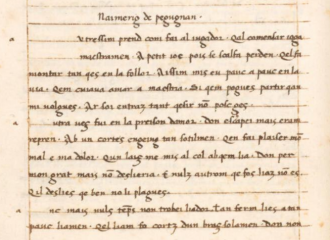 Naimerig de pegugnan.
Atressim prend com faz al iugador. Qal comensar ioga
maestramen. A petit ioc pois se scalfa perden. Qel fa
montar tan qes en la follor. Aissim mis eu pauc a pauc en la
uia. Qem cuiaua amar a maestria. Si qem pogues partir qan
mi uolgues. Ar soi entraz tant qeisir nō posc ges.
utra ues fui en la preison damor. Don escapei mais eram
repren. Ab un cortes engeng tan sotilmen. Qem faz plaiser mō
mal e ma dolor. Qun laiz me mis al col abqem lia. Don per
mon grat mais no deslieria. E nulz autrom qe fos liaz nō es.
Qil desliés qe ben no li plagues.
nc mais nuls tēps non trobei liador. Tan ferm liés atan
pauc liamen. Qel liam fo cortz dun brais solamen. Don non